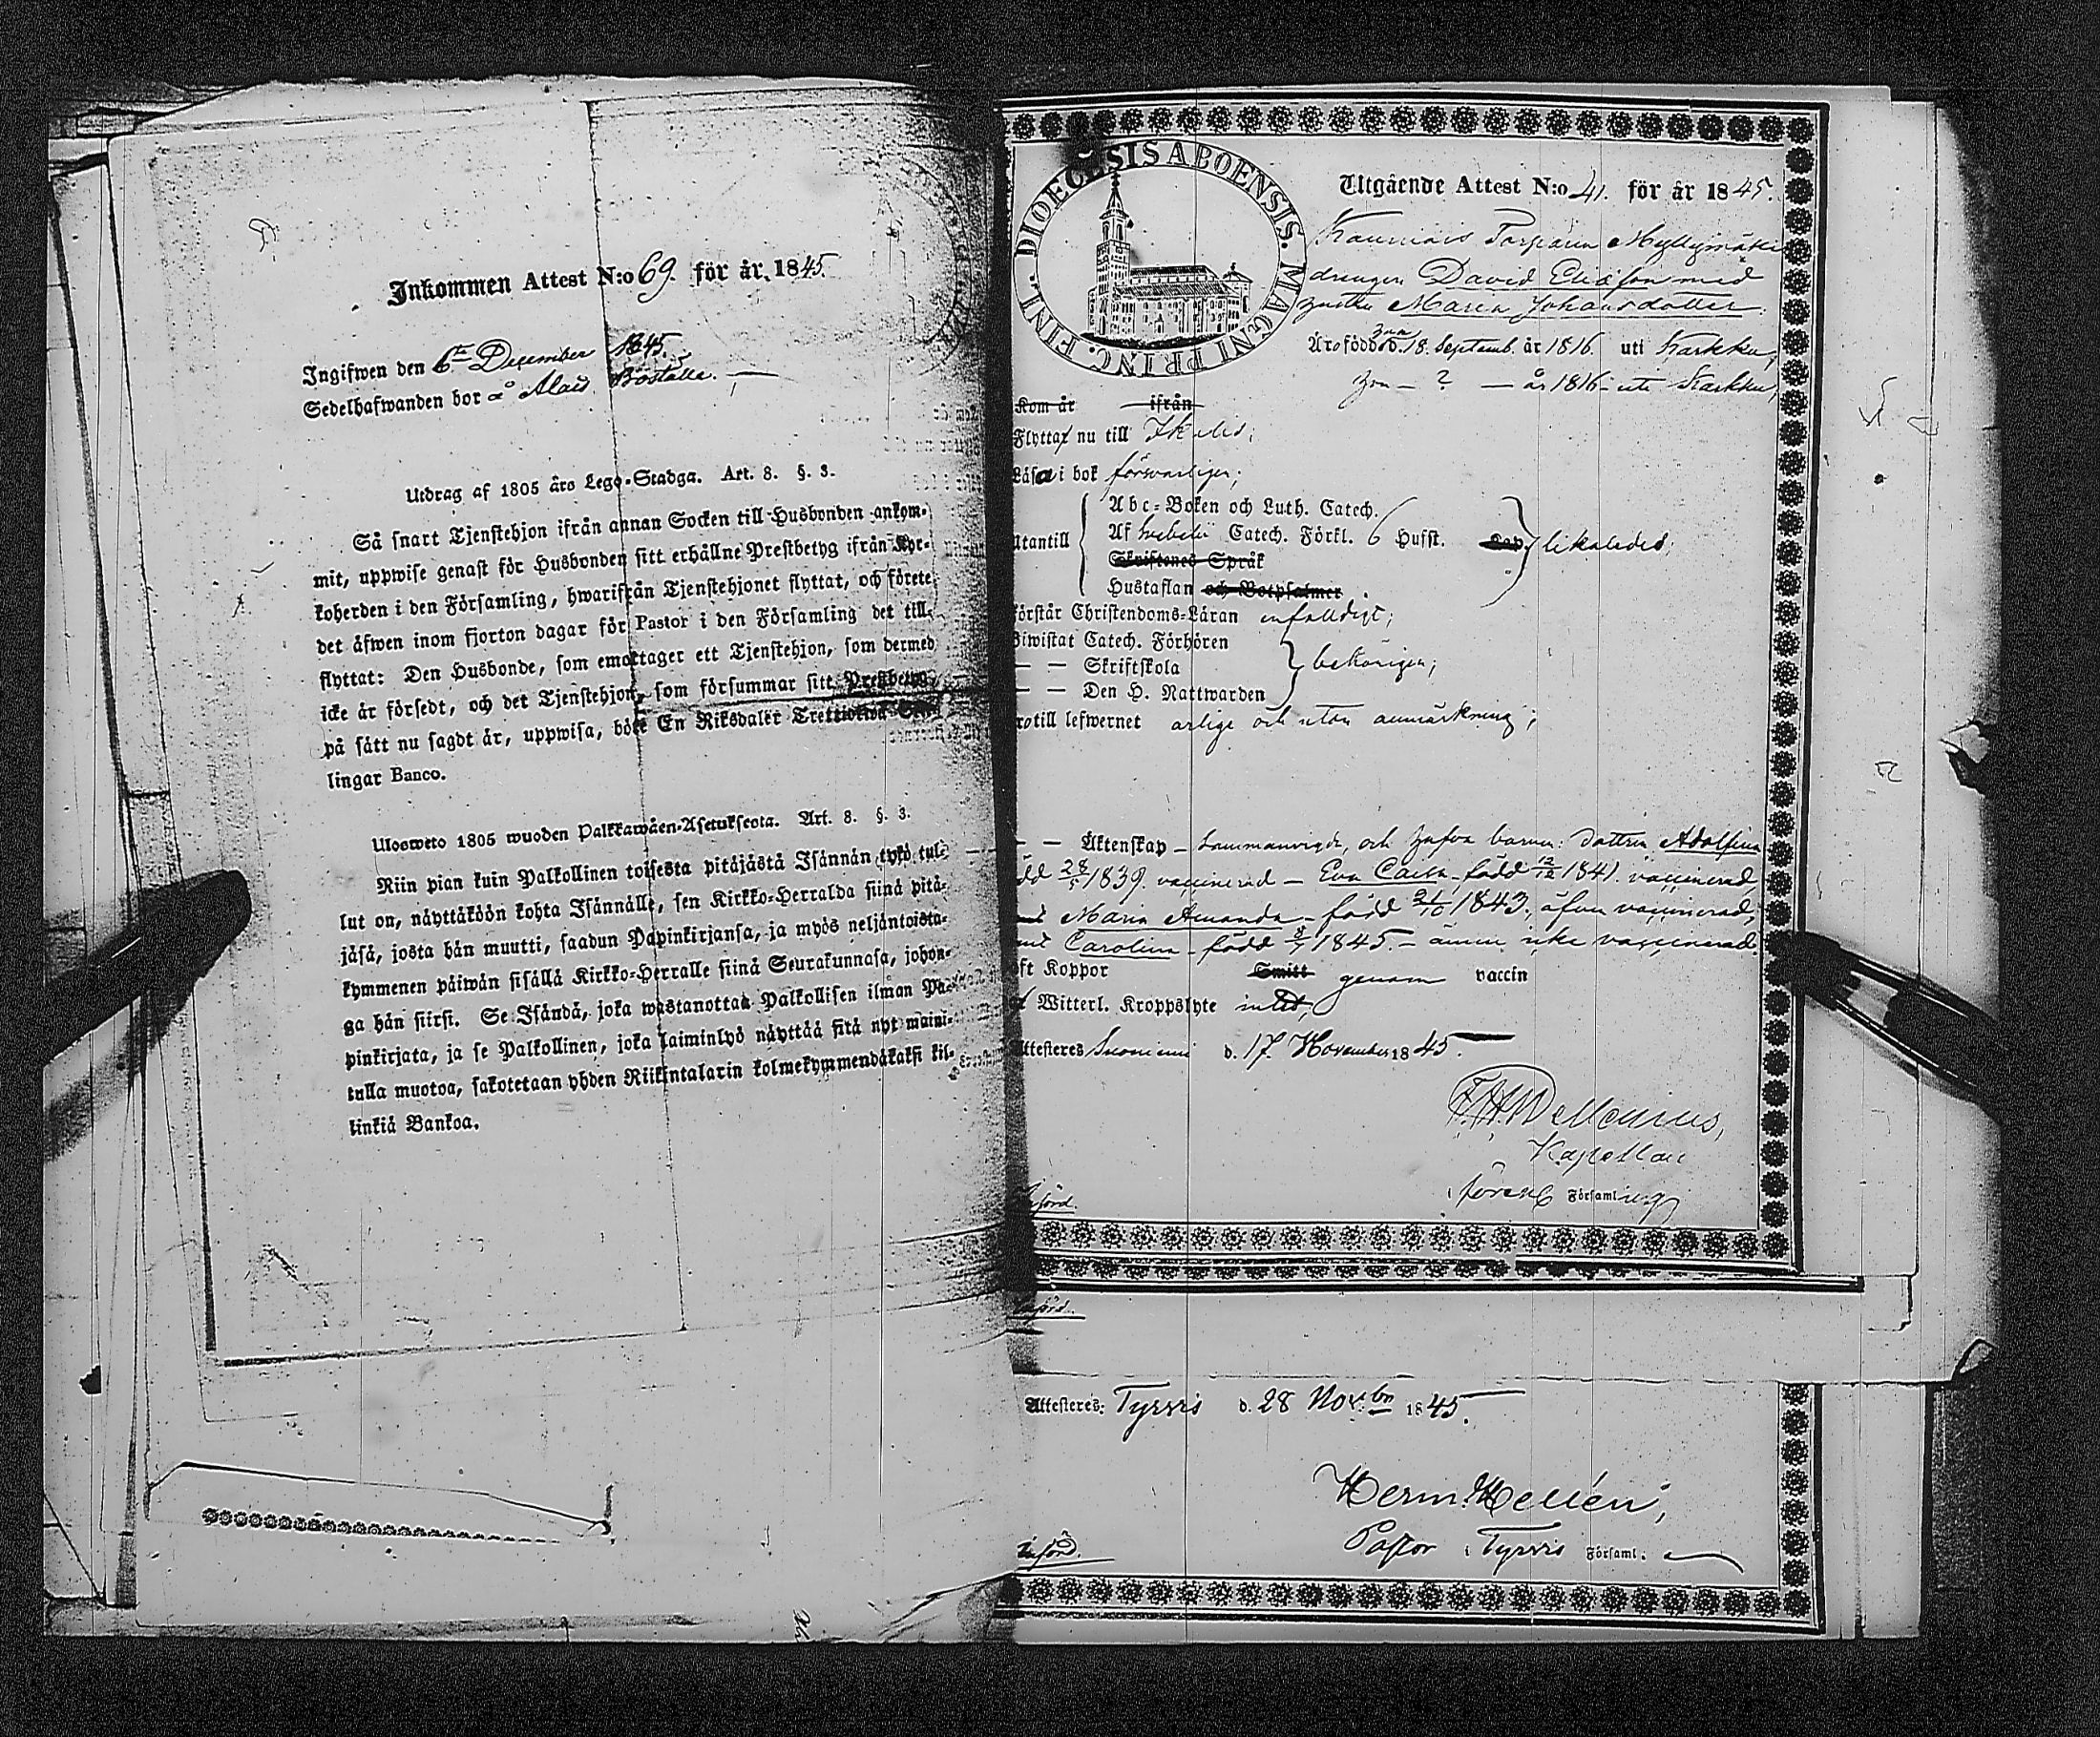 Inkommen Attest N:o 69. för år 1845.
Ingifwen den 6te December 1845.
Sedelhafwanden bor å Alais Boställe.
Utdrag af 1805 års Lego-Stadga. Art. 8. §. 3.
Så snart Tjenstehjon ifrån annan Socken till Husbonden ankom-
mit, uppwise genast för Husbonden sitt erhållne Prestbetyg ifrån Kyr-
koherden i den Församling, hwarifrån Tjenstehjonet flyttat, och förete
det äfwen inom fjorton dagar för Pastor i den Församling det till-
flyttat: Den Husbonde, som emottager ett Tjenstehjon, som dermed
icke är försedt, och det Tjenstehjon, som försummar sitt Prestbetyg,
på sätt nu sagdt är, uppwisa, böte En Riksdaler Trettiotwå Skil-
lingar Banco.
Ulosweto 1805 wuoden Palkkawäen-Asetuksesta. Art. 8. §. 3.
Niin pian kuin Palkollinen toisesta pitäjästä Isännän tykö tul-
lut on, näyttäköön kohta Isännälle, sen Kirkko-Herralda siinä pitä-
jäsä, josta hän muutti, saadun Papinkirjansa, ja myös neljäntoista-
kymmenen päiwän sisällä Kirkko-Herralle siinä Seurakunnasa, johon-
ga hän siirsi. Se Isändä, joka wastanottaa Palkollisen ilman Pa-
pinkirjata, ja se Palkollinen, joka laiminlyö näyttää sitä nyt maini-
tulla muotoa, sakotetaan yhden Riikintalarin kolmekymmendäkaksi kil-
linkiä Bankoa.
DIOECESIS ABOENSIS. MAGNI PRINC. FINL.
Utgående Attest N:o 41. för år 1845.
drengen David Eliasson med
hustru Maria Johansdotter.
Äro födde d. 18. Septemb. år 1816. uti Karkku,
hon – ? – år 1816 – uti Karkku,
Kom år ifrån
Flytta nu till Ikalis;
Läsa i bok försvarligen;
Utantill Abc-Boken och Luth. Catech.
Af Svebelii Catech. Förkl. 6 Hufst. Cap. likaledes;
Skriftenes Språk
Hustaflan och Botpsalmer
Förstår Christendoms-Läran enfaldigt;
Biwistat Catech. Förhören
— — Skriftskola behörigen;
— — Den H. Nattwarden
till lefwernet ärlige och utan anmärkning;
— — Äktenskap – sammanvigde, och hafva barnen: dottren Adolfina
född 28/5 1839. vaccinerad – Eva Caisa född 12/12 1841. vaccinerad,
Maria Amanda – född 21/10 1843. äfven vaccinerad,
samt Carolina – född 8/7 1845. – ännu icke vaccinerad.
Haft Koppor Smitt genom vaccin
Witterl. Kroppslyte intet;
Attesteres Suoniemi d. 17 November 1845.
Kapellan
i förend Församling
Införd.
Införd.
Attesteres: Tyrvis d. 28 Nov:br 1845.
Herm. Hellén,
Pastor i Tyrvis Församl.
Införd.